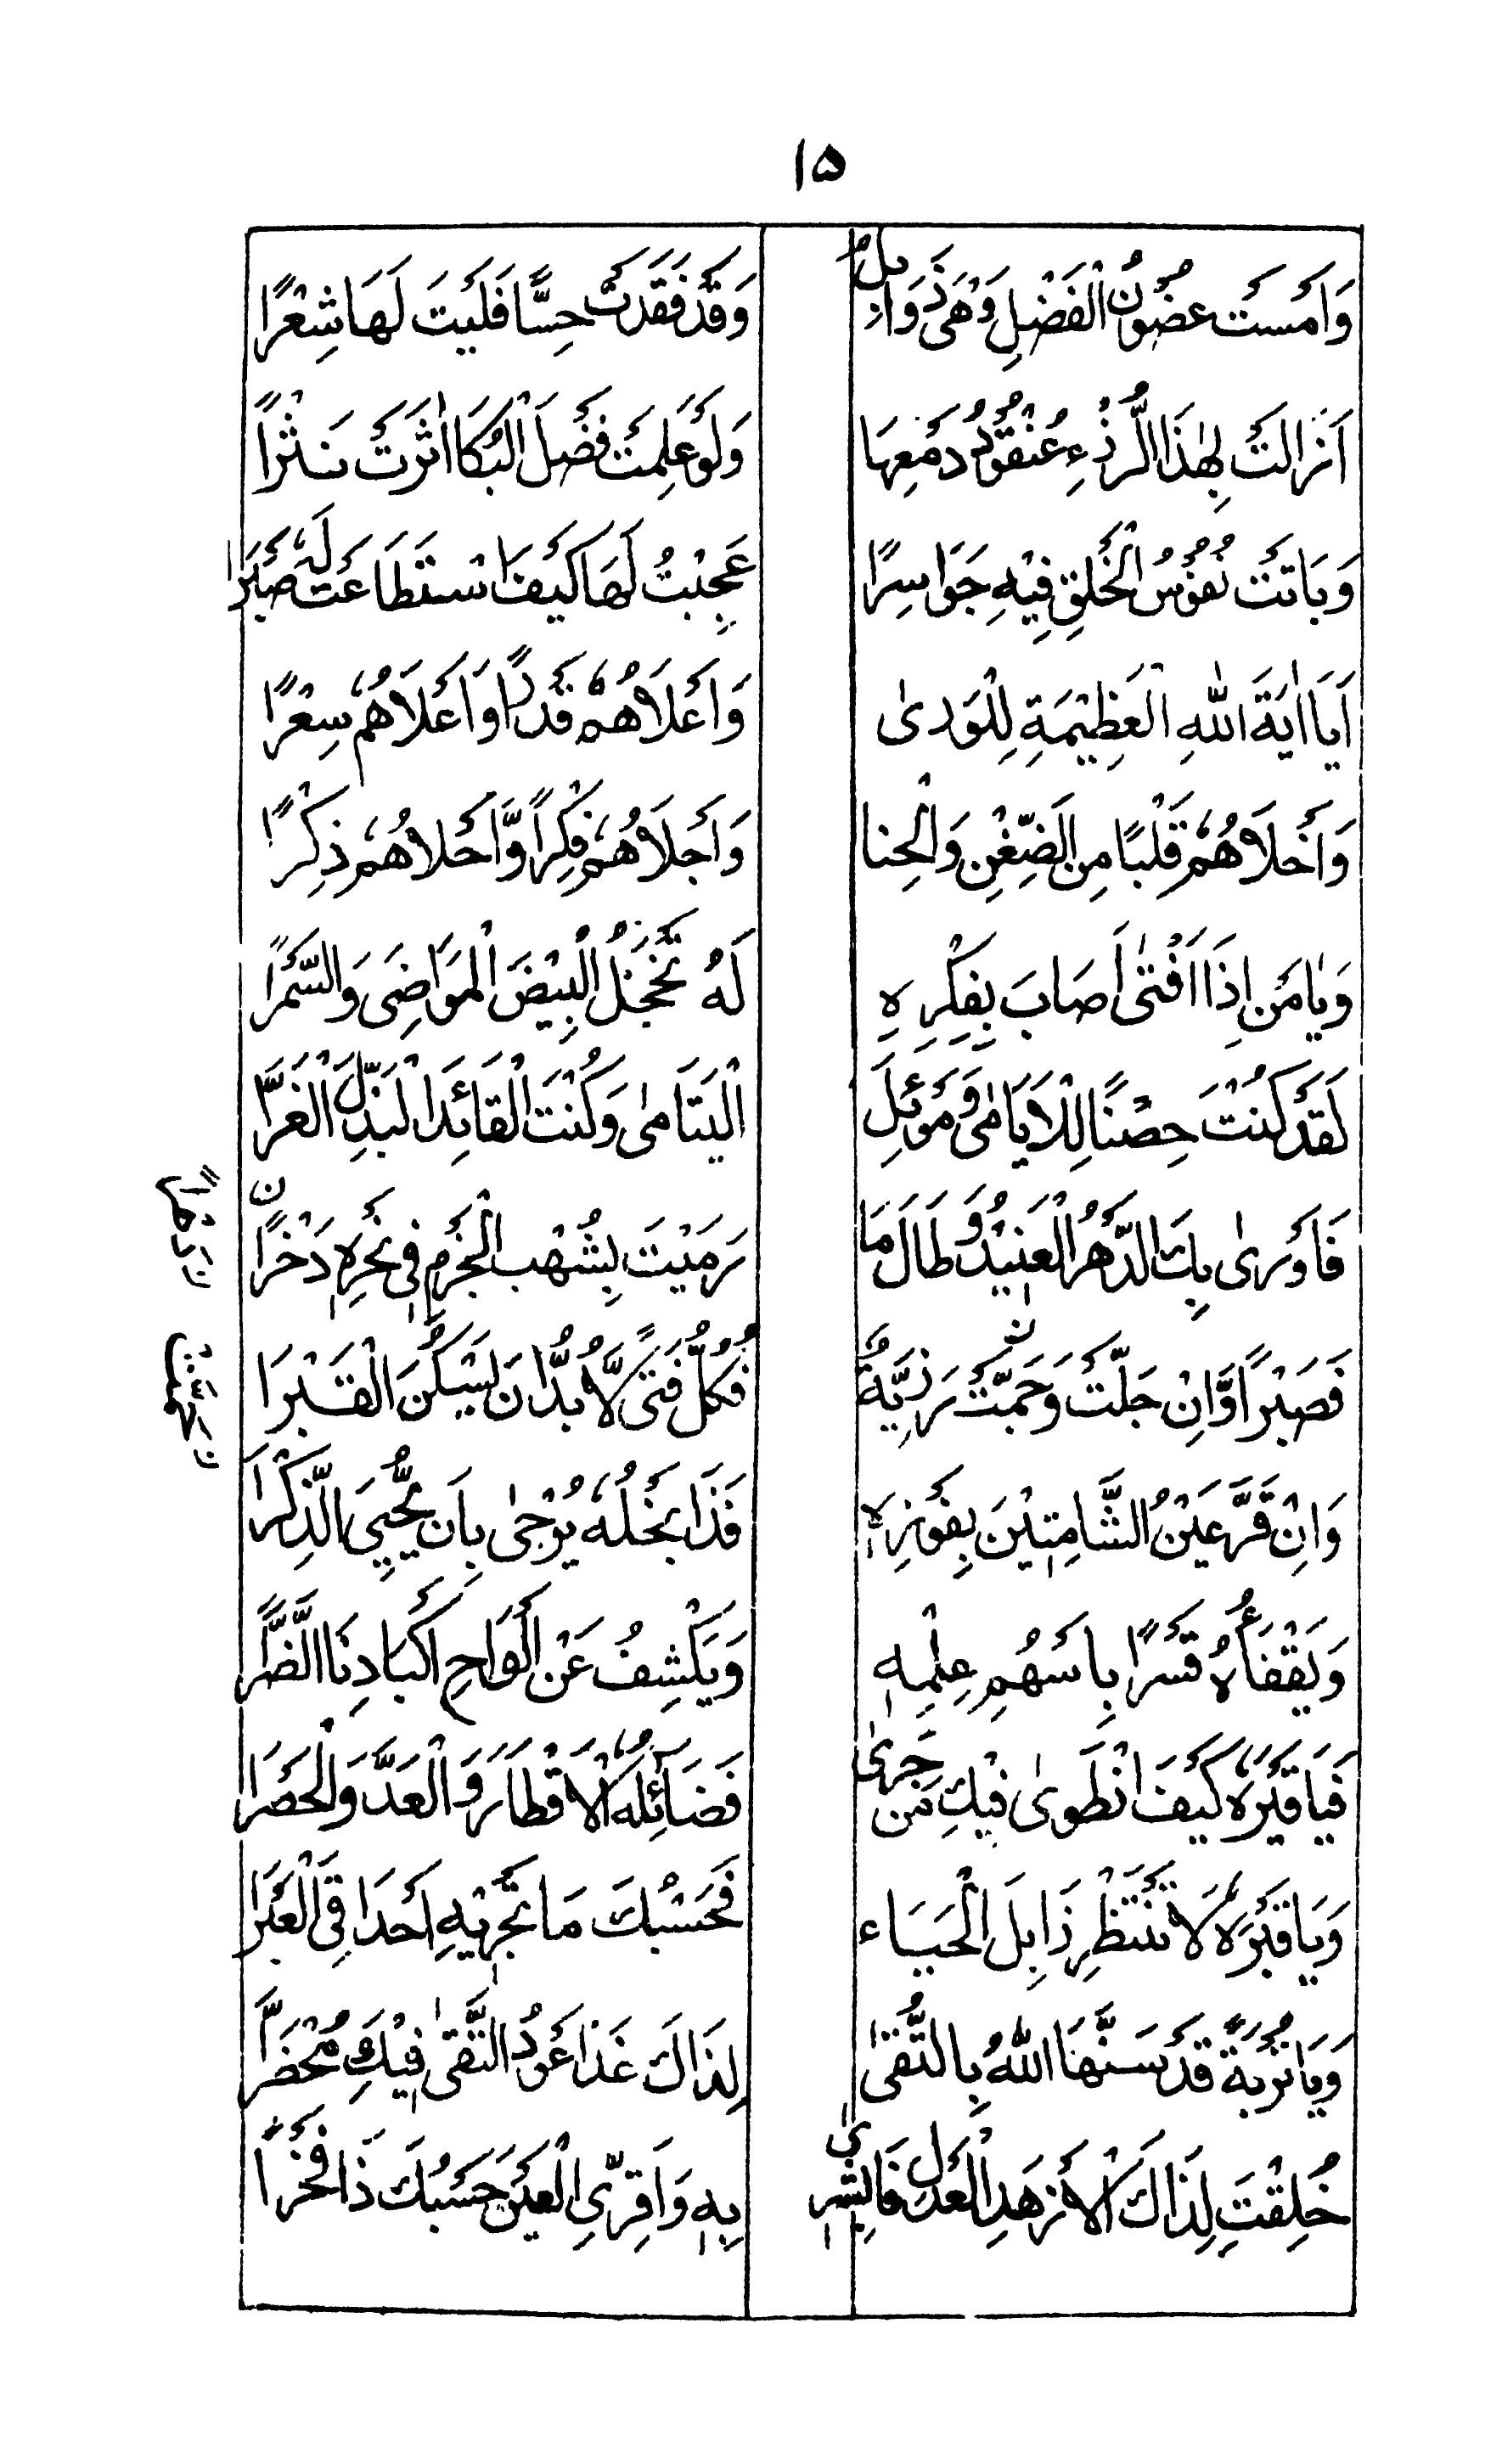 ۱۵
وَاَمْسَتْ غصُوْنُ الْفَضْلِ وَهْىَ ذَوَابِلٌ وَقَدْ فَقَدَتْ حِسًّا فَلَيْتَ لَهَا شِعْرًا
اَزَالَتْ بِهٰذَا الرُّزْءِ عُنْقُوْدُ دَمْعِهَا وَلَوْ عَلِمَتْ فَضْلَ الْبُكَا اٰثَرَتْ نَثْرًا
وَبَاتَتْ نُفُوْسُ الْخَلْقِ فِيْهِ جَوَاسِرًا عَجِبْتُ لَهَا كَيْفَ اسْتَطَاعَتْ لَهٗ صَبْرَا
اَيَا اٰيَةَ اللّٰهِ الْعَظِيْمَةِ لِلْوَرىٰ وَاَعْلَاهُمْ قَدْرًا وَاَعْلَاهُمْ سِعْرًا
وَاَخْلَاهُمْ قَلْبًا مِنَ الضِّغْنِ وَالْخِنا وَاَجْلَاهُمْ فِكْرًا وَّاَحْلاهُمْ ذِكْرًا
وَيٰا مَن اِذَا اَفْتٰى اَصَابَ بِفِكْرِهٖ لَهُ تَخْجَلُ الْبِيْضَ الْمَوَاضِىَ وَالسُّمْرًا
لَقَدْ كُنْتَ حِصْنًا لِلْاَيَامٰى وَمَوْئِلَ الْيَتَامٰى وَكُنْتَ الْقَائِدَ الْبَذِلَ الْغَرَّا
فَاَوْرىٰ بِكَ الدَّهْرُ الْعَنِيْدُ وَطَالَ مَا رَمَيْتَ بِشُهْبِ الْحَزْمِ فِى نَحْرِهٖ دَخْرًا
فَصَبْرًا وَّاِنْ جَلَّتْ وَحَمَّتْ رَزِيَّةٌ فَكُلُّ فَتًى لَّا بُدَّ اَن يَسْكُنَ الْقَبْرَا
وَاِنْ قَرَّ عَيْنُ الشَّامِتِيْنَ بِفَوْزِهٖ فَذَا نَجْلُهٗ يُرْجٰى بِاَن يُّحْيِىَ الذِّكْرَا
وَيَفْقَأُهُ قَسْرًا بِاَسْهُمِ عِلْمِهٖ وَيَكْشِفُ عَنْ اَلْوَاحِ اَكْبَادِنَا الضُّرَّا
فَيَا قَبْرَهٗ كَيْفَ انْطَوىٰ فِيْكَ مَنْ جَرىٰ فَضَائِلُهُ الْاَقْطَارَ وَ الْعَدَّ وَالْحَصْرَا
وَيَا قَبْرَهٗ لَا تَنْتَظِرْ زَابِلَ الْحَيَاء فَحَسْبُكَ مَا تُجْرِيْهِ اَحْدَاقِىَ الْعَبْرَا
وَيَا تُرْبَةً قَدْ سَنَّهَا اللّٰهُ بِالتُّقىٰ لِذَاكَ غَذَا عُوْدُ التُّقىٰ فِيْكِ مُخْضَرًّا
خُلِقْتِ لِذَاكَ الْاَزْهَدِ الْعَدْلِ فَابْشِرِىْ بِهٖ وَاقِرِّىِ الْعَيْنَ حَسْبُكَ ذَا فَخْرًا